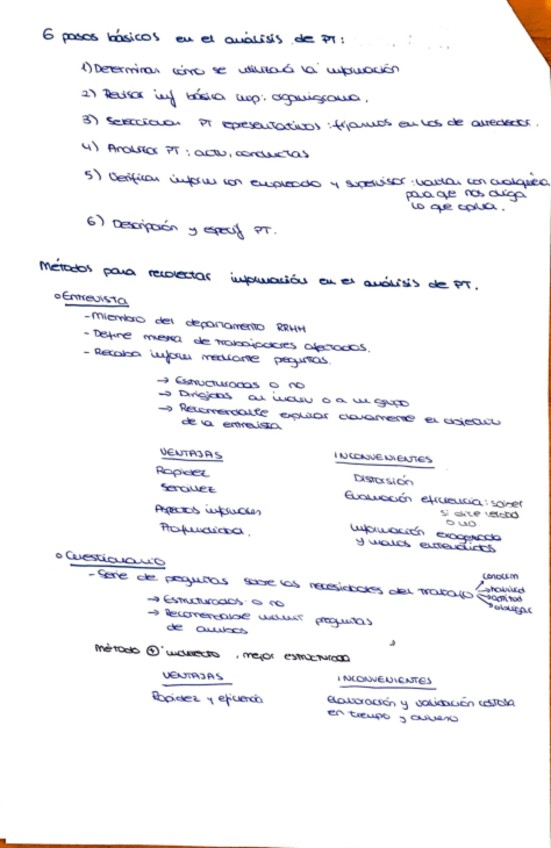 6 pasos básicos en el análisis de PT:
1) Determinar cómo se utilizará la información
2) Revisar inf básica ejp: organigrama.
3) Seleccionar PT representativos: fijarnos en los de alrededor.
4) Analizar PT: activ, conductas
5) Verificar inform con empleado y supervisor: con cualquiera
para que nos diga
lo que opina.
6) Descripción y especif PT.
Métodos para recolectar información en el análisis de PT.
o Entrevista
- Miembro del departamento RRHH
- Define muestra de trabajadores afectados.
- Recaba inform mediante preguntas.
→ Estructuradas o no
→ Dirigidas al indiv o a un grupo
→ Recomendable explicar claramente el objetivo
de la entrevista
VENTAJAS INCONVENIENTES
Rapidez Distorsión
Sencillez Evaluación eficiencia: saber
si dice verdad
o no
Aspectos informales
Profundidad. Información exagerada
y malos entendidos
o Cuestionario
- Serie de preguntas sobre las necesidades del trabajo
conocim
habilid
actitud
→ Estructurados o no
→ Recomendable incluir preguntas
de ambos
Método indirecto, mejor estructurado
VENTAJAS INCONVENIENTES
Rapidez y eficiencia Elaboración y validación costosa
en tiempo y dinero